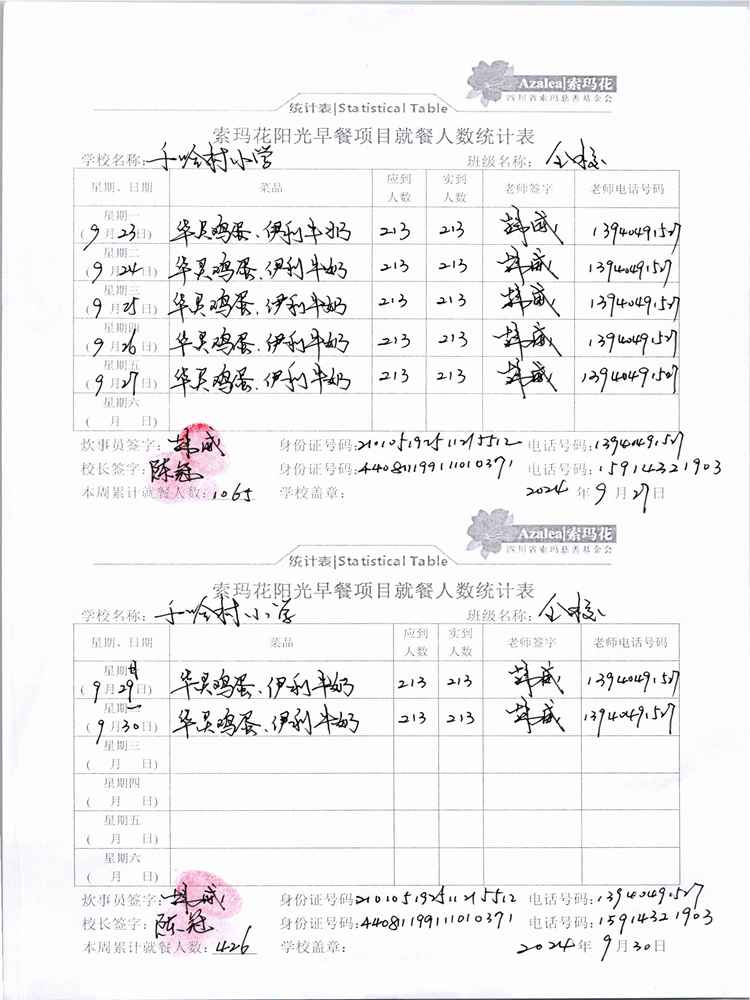 Azalea|索玛花
四川省索玛慈善基金会
统计表|Statistical Table
索玛花阳光早餐项目就餐人数统计表
学校名称: 村小学 班级名称: 全校
星期、日期 菜品 应到人数 实到人数 老师签字 老师电话号码
星期一 (9月23日) 华昊鸡蛋、伊利牛奶 213 213 韩威 13940491527
星期二 (9月24日) 华昊鸡蛋、伊利牛奶 213 213 韩威 13940491527
星期三 (9月25日) 华昊鸡蛋、伊利牛奶 213 213 韩威 13940491527
星期四 (9月26日) 华昊鸡蛋、伊利牛奶 213 213 韩威 13940491527
星期五 (9月27日) 华昊鸡蛋、伊利牛奶 213 213 韩威 13940491507
星期六 ( 月 日)
炊事员签字: 韩威 身份证号码: 电话号码: 13940491527
校长签字: 陈冠 身份证号码: 440811199111010371 电话号码: 15914321903
本周累计就餐人数: 1065 学校盖章: 2024年9月27日
Azalea|索玛花
四川省索玛慈善基金会
统计表|Statistical Table
索玛花阳光早餐项目就餐人数统计表
学校名称: 村小学 班级名称: 全校
星期、日期 菜品 应到人数 实到人数 老师签字 老师电话号码
星期日 (9月29日) 华昊鸡蛋、伊利牛奶 213 213 韩威 13940491527
星期一 (9月30日) 华昊鸡蛋、伊利牛奶 213 213 韩威 13940491527
星期三 ( 月 日)
星期四 ( 月 日)
星期五 ( 月 日)
星期六 ( 月 日)
炊事员签字: 韩威 身份证号码: 电话号码: 13940491527
校长签字: 陈冠 身份证号码: 440811199111010371 电话号码: 15914321903
本周累计就餐人数: 426 学校盖章: 2024年9月30日